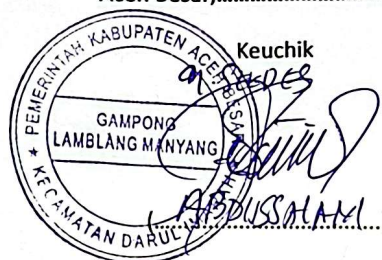 Keuchik
an SEKDES
PEMERINTAH KABUPATEN ACEH BESAR
GAMPONG
LAMBLANG MANYANG
KECAMATAN DARUL
ABDUSSALAM